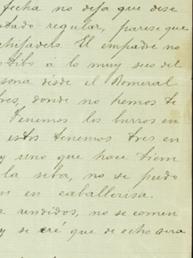 fecha no deja que dese
stado regular, parese que
El empadre no
tibo a lo muy seco del
sona desde el Romeral
res, donde no hemos te
Tenemos los burros en
estos tenemos tres en
y uno que hace tiem
la seba, no se pudo
en caballerisa.
rendidos, no se comen
y se cré que de ocho sera